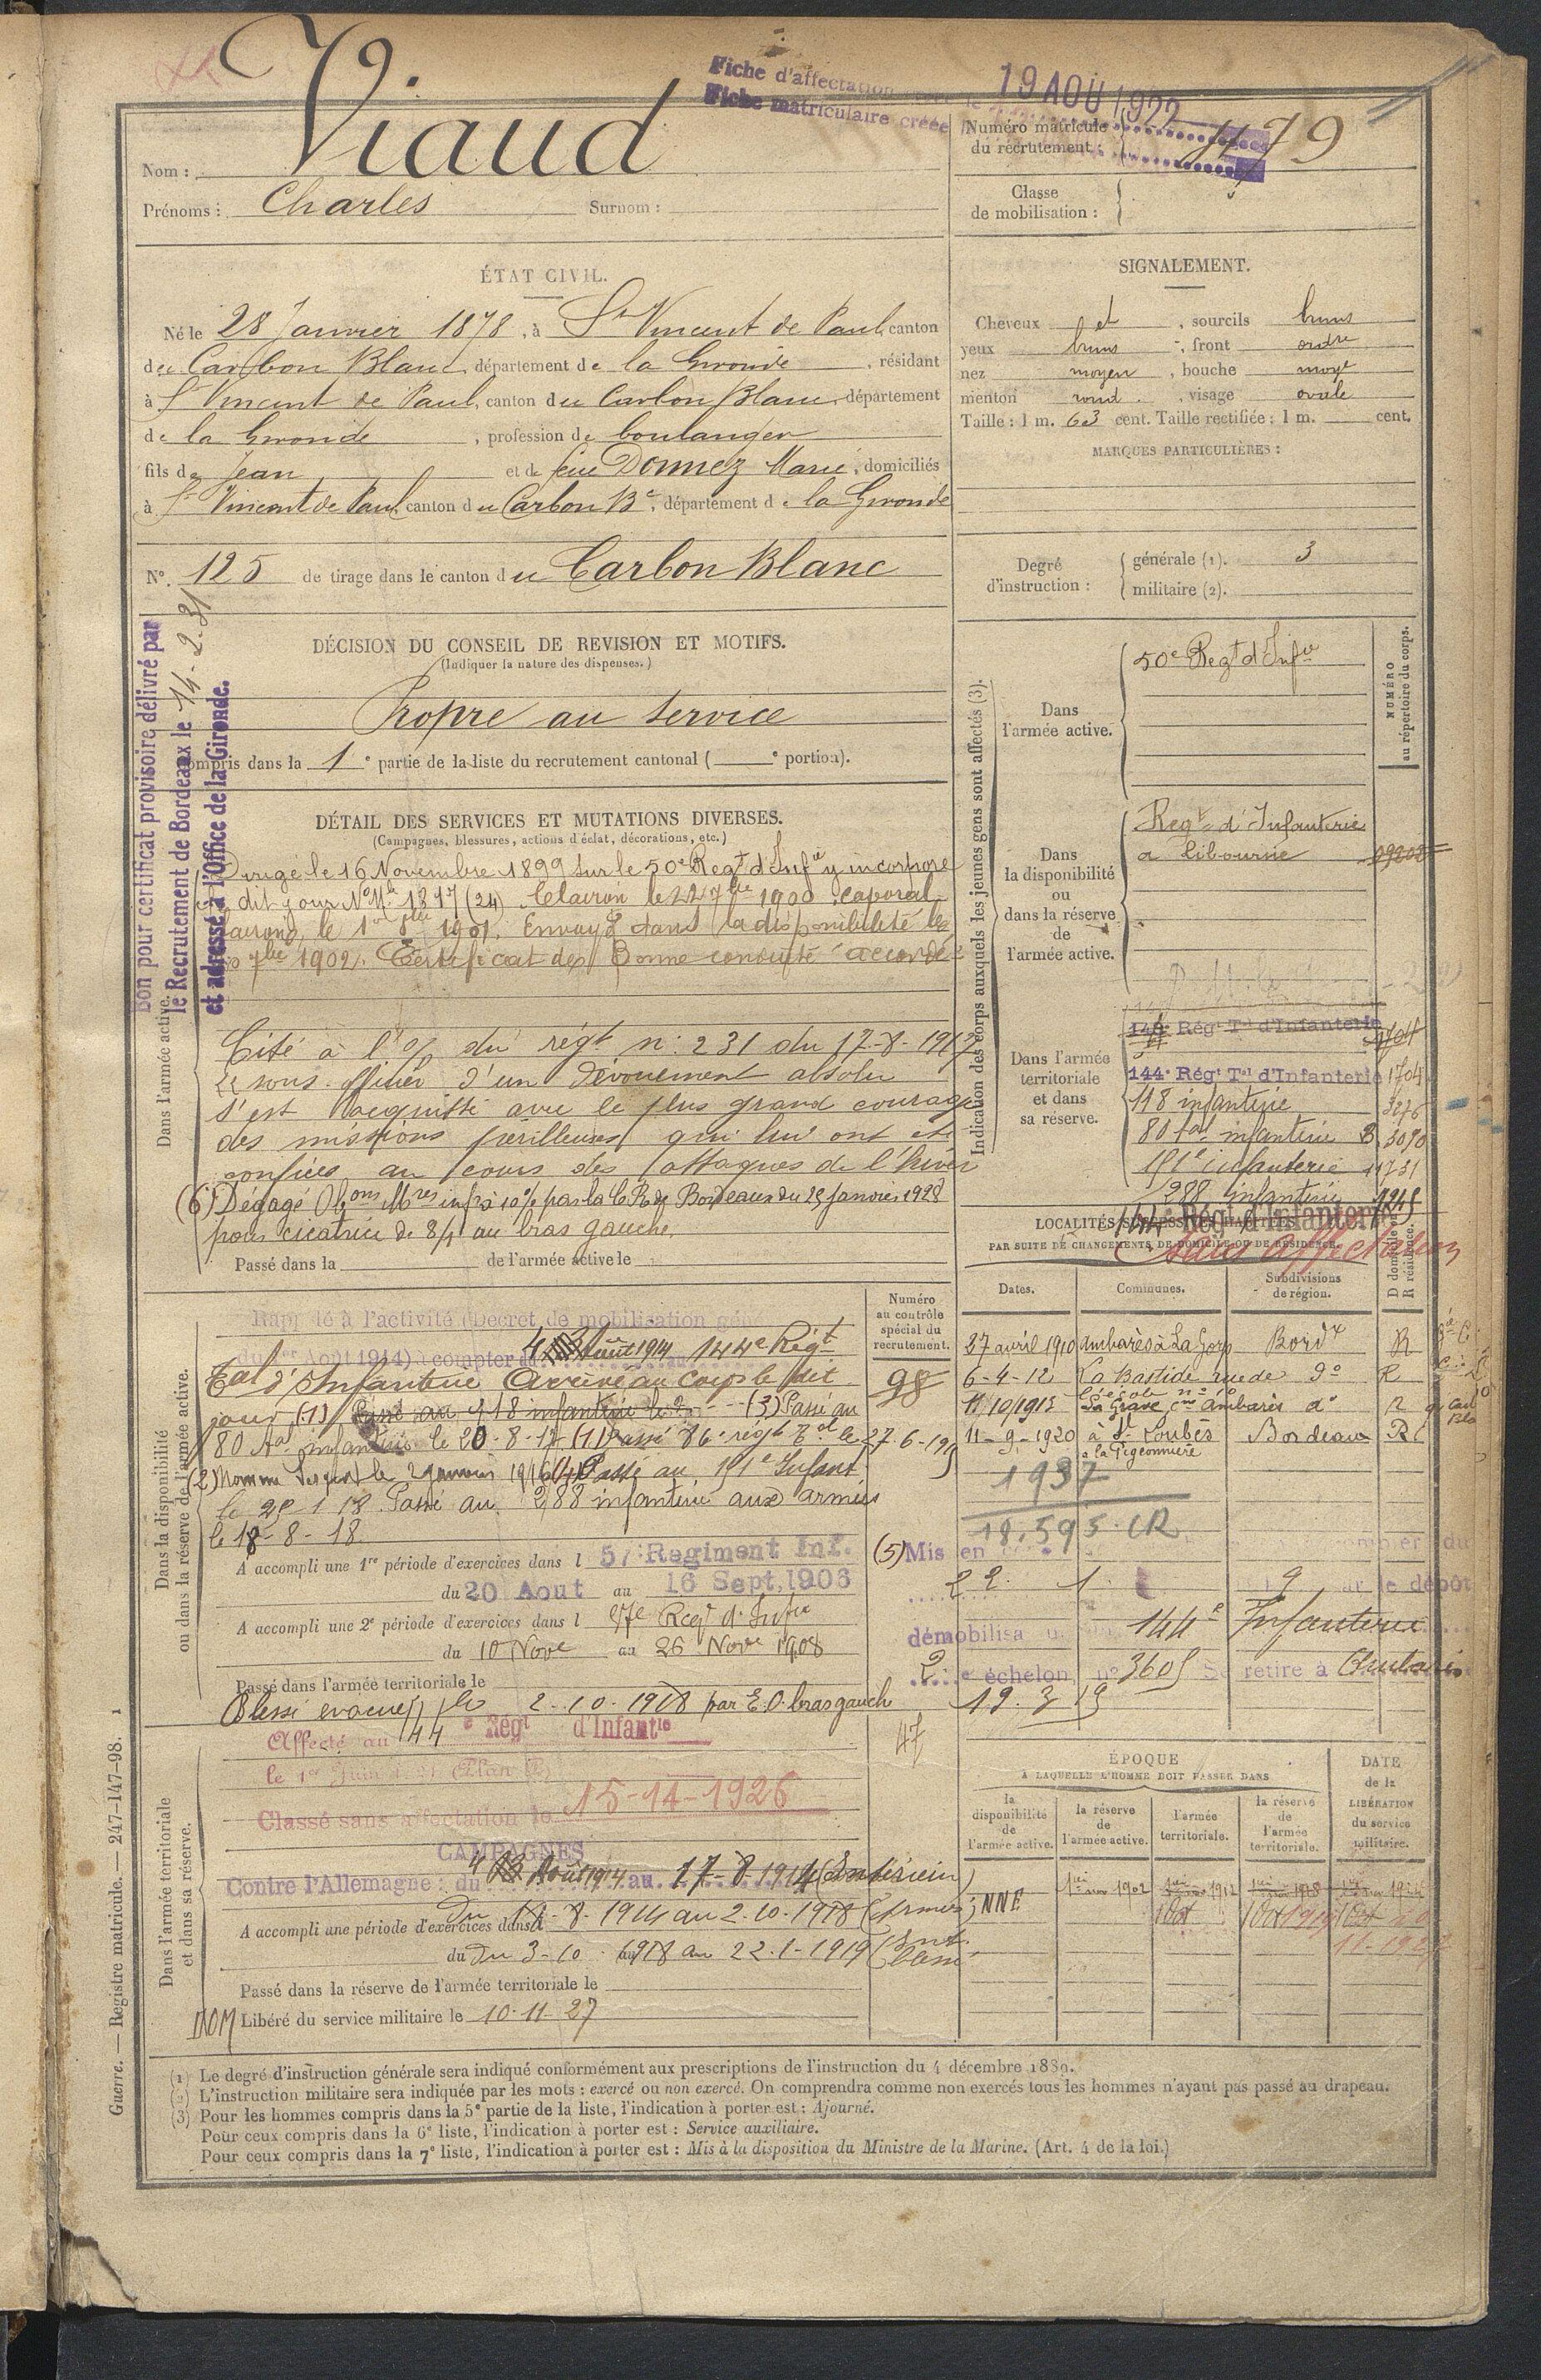 Viaud
Fiche d'affectation créée le 19 AOU 1922
Fiche matriculaire créée
Nom :
Prénoms : Charles Surnom :
Numéro matricule du recrutement : 479
Classe de mobilisation :
ÉTAT CIVIL.
Né le 28 Janvier 1878, à St Vincent de Paul, canton
du Carbon Blanc, département de la Gironde, résidant
à St Vincent de Paul, canton du Carbon Blanc, département
de la Gironde, profession de boulanger
fils de Jean et de feue Donnez Marie, domiciliés
à St Vincent de Paul, canton du Carbon Bc, département de la Gironde
N° 125 de tirage dans le canton du Carbon Blanc
SIGNALEMENT.
Cheveux et, sourcils bruns
yeux bruns, front ordre
nez moyen, bouche moye
menton rond, visage ovale
Taille : 1 m. 63 cent. Taille rectifiée : 1 m. cent.
MARQUES PARTICULIÈRES :
Degré d'instruction : générale (1). 3
militaire (2).
DÉCISION DU CONSEIL DE REVISION ET MOTIFS.
(Indiquer la nature des dispenses.)
Propre au service
Compris dans la 1e partie de la liste du recrutement cantonal ( e portion).
Bon pour certificat provisoire délivré par
le Recrutement de Bordeaux le 14. 2. 31
et adressé à l'Office de la Gironde.
DÉTAIL DES SERVICES ET MUTATIONS DIVERSES.
(Campagnes, blessures, actions d'éclat, décorations, etc.)
Dans l'armée active.
Dirigé le 16 Novembre 1899 sur le 50e Regt d'Infie y incorporé
dit jour N° Mle 1817 (24). Clairon le 22 7bre 1900 Caporal
clairons le 1er 8bre 1901. Envoyé dans la disponibilité le
7bre 1902. Certificat de Bonne conduite accordé
Cité à l'o/ du régt n° 231 du 17-8-1917
sous-officier d'un dévouement absolu
s'est acquitté avec le plus grand courage
des missions périlleuses qui lui ont été
confiées au cours des attaques de l'hiver
(6) Dégagé Obons Mres inf à 10% par la C.R. de Bordeaux du 25 Janvier 1928
pour cicatrice de 8/4 au bras gauche
Passé dans la de l'armée active le
Indication des corps auxquels les jeunes gens sont affectés (3).
NUMÉRO au répertoire du corps.
Dans l'armée active.
50e Regt d'Infie
Dans la disponibilité ou dans la réserve de l'armée active.
Regt d'Infanterie
a Libourne
Dans l'armée territoriale et dans sa réserve.
144e Régt Tal d'Infanterie
144e Régt Tal d'Infanterie 1704
118 infanterie 3276
80 tal infanterie B. 3090
151e infanterie 14731
288 infanterie
144e Régt d'Infanterie
Sans affectation
LOCALITÉS SUCCESSIVES HABITÉES
PAR SUITE DE CHANGEMENTS DE DOMICILE OU DE RÉSIDENCE.
Dates. Communes. Subdivisions de région. D domicile R résidence.
27 avril 1910 Ambarès à La Gorp Bordx R
6-4-12 La Bastide rue de do R
11/10/1913 La Grave cne Ambarès do R
11-9-1920 à St Loubès Bordeaux R
a la Pigeonnière
1937
18.595.CR
Dans la disponibilité ou dans la réserve de l'armée active.
Numéro au contrôle spécial du recrutement.
98
Rappelé à l'activité (Décret de mobilisation géné
du 1er Août 1914) à compter du 4 Août 1914 144e Régt
Tal d'Infanterie Arrivé au corps le dit
jour (1) Passé au 118 infanterie le 20 (3) Passé au
80 tal infanterie le 20-8-17 (1) Passé 86e régt Tal le 27-6-195
(2) Nommé Sergent le 2 janvier 1916 (4) Passé au 151e Infant
le 25 1 18 Passé au 288 infanterie aux armées
le 18-8-18
A accompli une 1re période d'exercices dans l 57e Regiment Inf.
du 20 Aout au 16 Sept. 1906
A accompli une 2e période d'exercices dans l 57e Regt d'Infie
du 10 Nove au 26 Nove 1908
Passé dans l'armée territoriale le
Blessé évacué le 2-10-1918 par E.O. bras gauche
(5) Mis en
22. 1. 9 par le dépôt
démobilisa 144e Infanterie
2e échelon n° 3605 Se retire à Ambarès
19. 3 19
Dans l'armée territoriale et dans sa réserve.
Affecté au 144e Régt d'Infantie
le 1er Juin
47
Classé sans affectation le 15-11-1926
CAMPAGNES
Contre l'Allemagne : du 4 Août 1914 au 17-8-1914 (Intérieur)
Du 18-8-1914 au 2-10-1918 (Armées)
A accompli une période d'exercices dans l
du Du 3-10-1918 au 22-1-1919 (Int.
Passé dans la réserve de l'armée territoriale le
DOM Libéré du service militaire le 10-11-27
ÉPOQUE
À LAQUELLE L'HOMME DOIT PASSER DANS
la disponibilité de l'armée active. la réserve de l'armée active. l'armée territoriale. la réserve de l'armée territoriale. DATE de la LIBÉRATION du service militaire.
NNE 1er nov 1902
(1) Le degré d'instruction générale sera indiqué conformément aux prescriptions de l'instruction du 4 décembre 1889.
(2) L'instruction militaire sera indiquée par les mots : exercé ou non exercé. On comprendra comme non exercés tous les hommes n'ayant pas passé au drapeau.
(3) Pour les hommes compris dans la 5e partie de la liste, l'indication à porter est : Ajourné.
Pour ceux compris dans la 6e liste, l'indication à porter est : Service auxiliaire.
Pour ceux compris dans la 7e liste, l'indication à porter est : Mis à la disposition du Ministre de la Marine. (Art. 4 de la loi.)
Guerre. — Registre matricule. — 247-147-98. 1